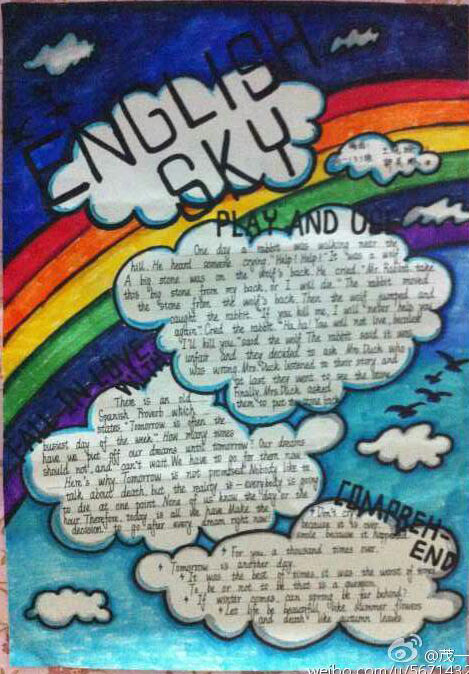 ENGLISH
SKY
PLAY AND
One day a rabbit was walking near the
hill. He heard someone crying "Help! Help!" It was a wolf.
A big stone was on the wolf's back. He cried "Mr Rabbit, take
this big stone from my back, or I will die." The rabbit moved
the stone from the wolf's back. Then the wolf jumped and
caught the rabbit. "If you kill me, I will never help you
again". Cried the rabbit. "Ha, ha! You will not live,
"I'll kill you." said the wolf. The rabbit said it was
unfair. And they decided to ask Mrs. Duck who
was wrong. Mrs. Duck listened to their story and
at last they went to see the
Finally Mrs. Duck asked
them to put the stone back.
FALL IN LOVE
WITH
There is an old
Spanish Proverb which
states "Tomorrow is often the
busiest day of the week." How many times
have we put off our dreams until tomorrow? Our dreams
should not and can't wait. We have to go for them now.
Here's why. Tomorrow is not promised. Nobody like to
talk about death but the reality is - everybody is going
to die at one point. None of us know the day or the
hour. Therefore, today is all we have. Make the
decision to go after every dream right now!
COMPREH-
END
Don't cry
because it is over,
smile because it happened
For you a thousand times over.
Tomorrow is another day.
It was the best of times, it was the worst of times.
To be or not to be that is a question.
If winter comes, can spring be far behind?
Let life be beautiful like summer flowers
and death like autumn leaves.
@茂一
weibo.com/u/5671432